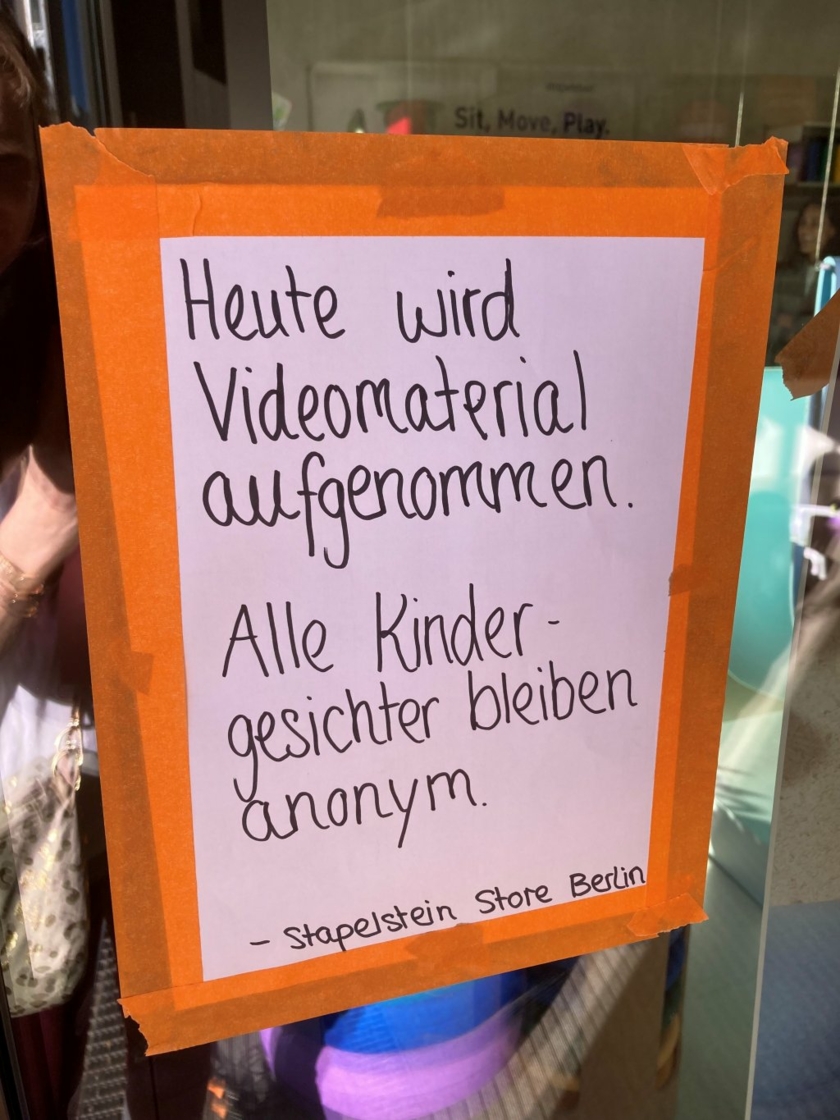 Sit, Move, Play.
Heute wird
Videomaterial
aufgenommen.
Alle Kinder-
gesichter bleiben
anonym.
- Stapelstein Store Berlin